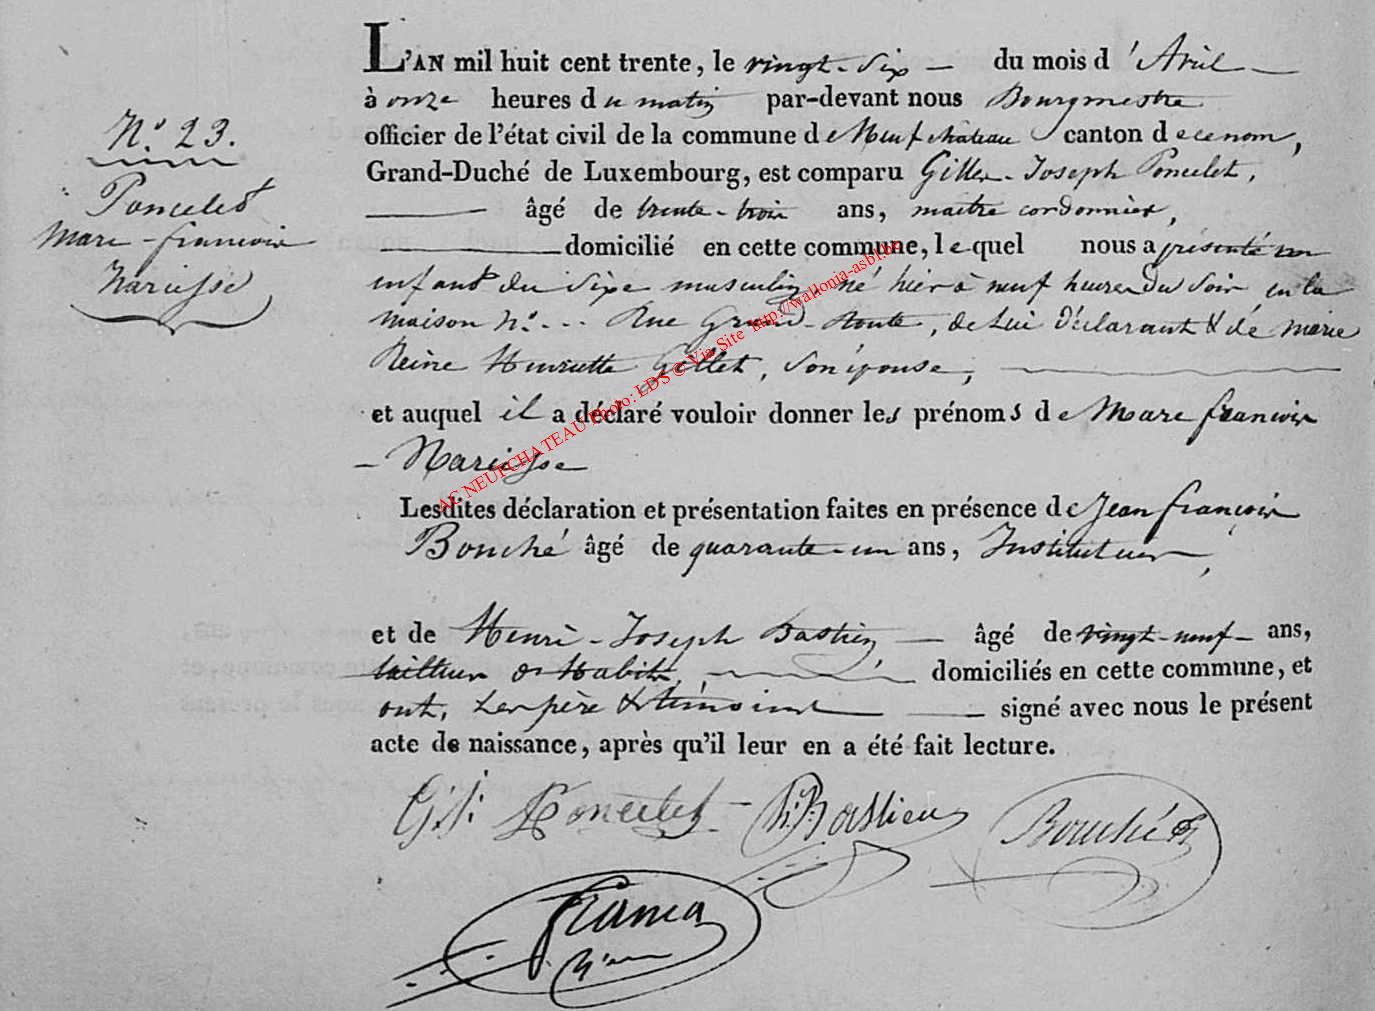 N.° 23.
Poncelet
Marc-francois
Narcisse
L'AN mil huit cent trente, le vingt-six — du mois d'Avril —
à onze heures du matin par-devant nous Bourgmestre
officier de l'état civil de la commune de Neufchâteau canton de ce nom,
Grand-Duché de Luxembourg, est comparu Gilles-Joseph Poncelet,
âgé de trente-trois ans, maitre cordonnier,
domicilié en cette commune, lequel nous a présenté un
enfant du sexe masculin né hier à neuf heures du soir, en la
maison N.° ... Rue Grand-Route, de Lui Déclarant & de Marie
Reine Henriette Gillet, son épouse,
et auquel il a déclaré vouloir donner les prénoms de Marc francois
— Narcisse
Lesdites déclaration et présentation faites en présence de Jean françois
Bouché âgé de quarante-un ans, Instituteur,
et de Henri-Joseph Bastien — âgé de vingt-neuf — ans,
tailleur de Habits, domiciliés en cette commune, et
ont, Les père & témoins signé avec nous le présent
acte de naissance, après qu'il leur en a été fait lecture.
G. J. Poncelet - Bastien Bouché
AC NEUFCHATEAU Photo: LDS © Via Site http://wallonia-asbl.be